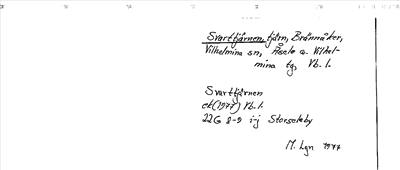 Svarttjärnen, tjärn, Brännåker,
Vilhelmina sn, Åsele o. Vilhel-
mina tg, Vb. l.
Svarttjärnen
ek (1977) Vb. l.
22G 8-9 i-j Storseleby
M. Lgn 1977